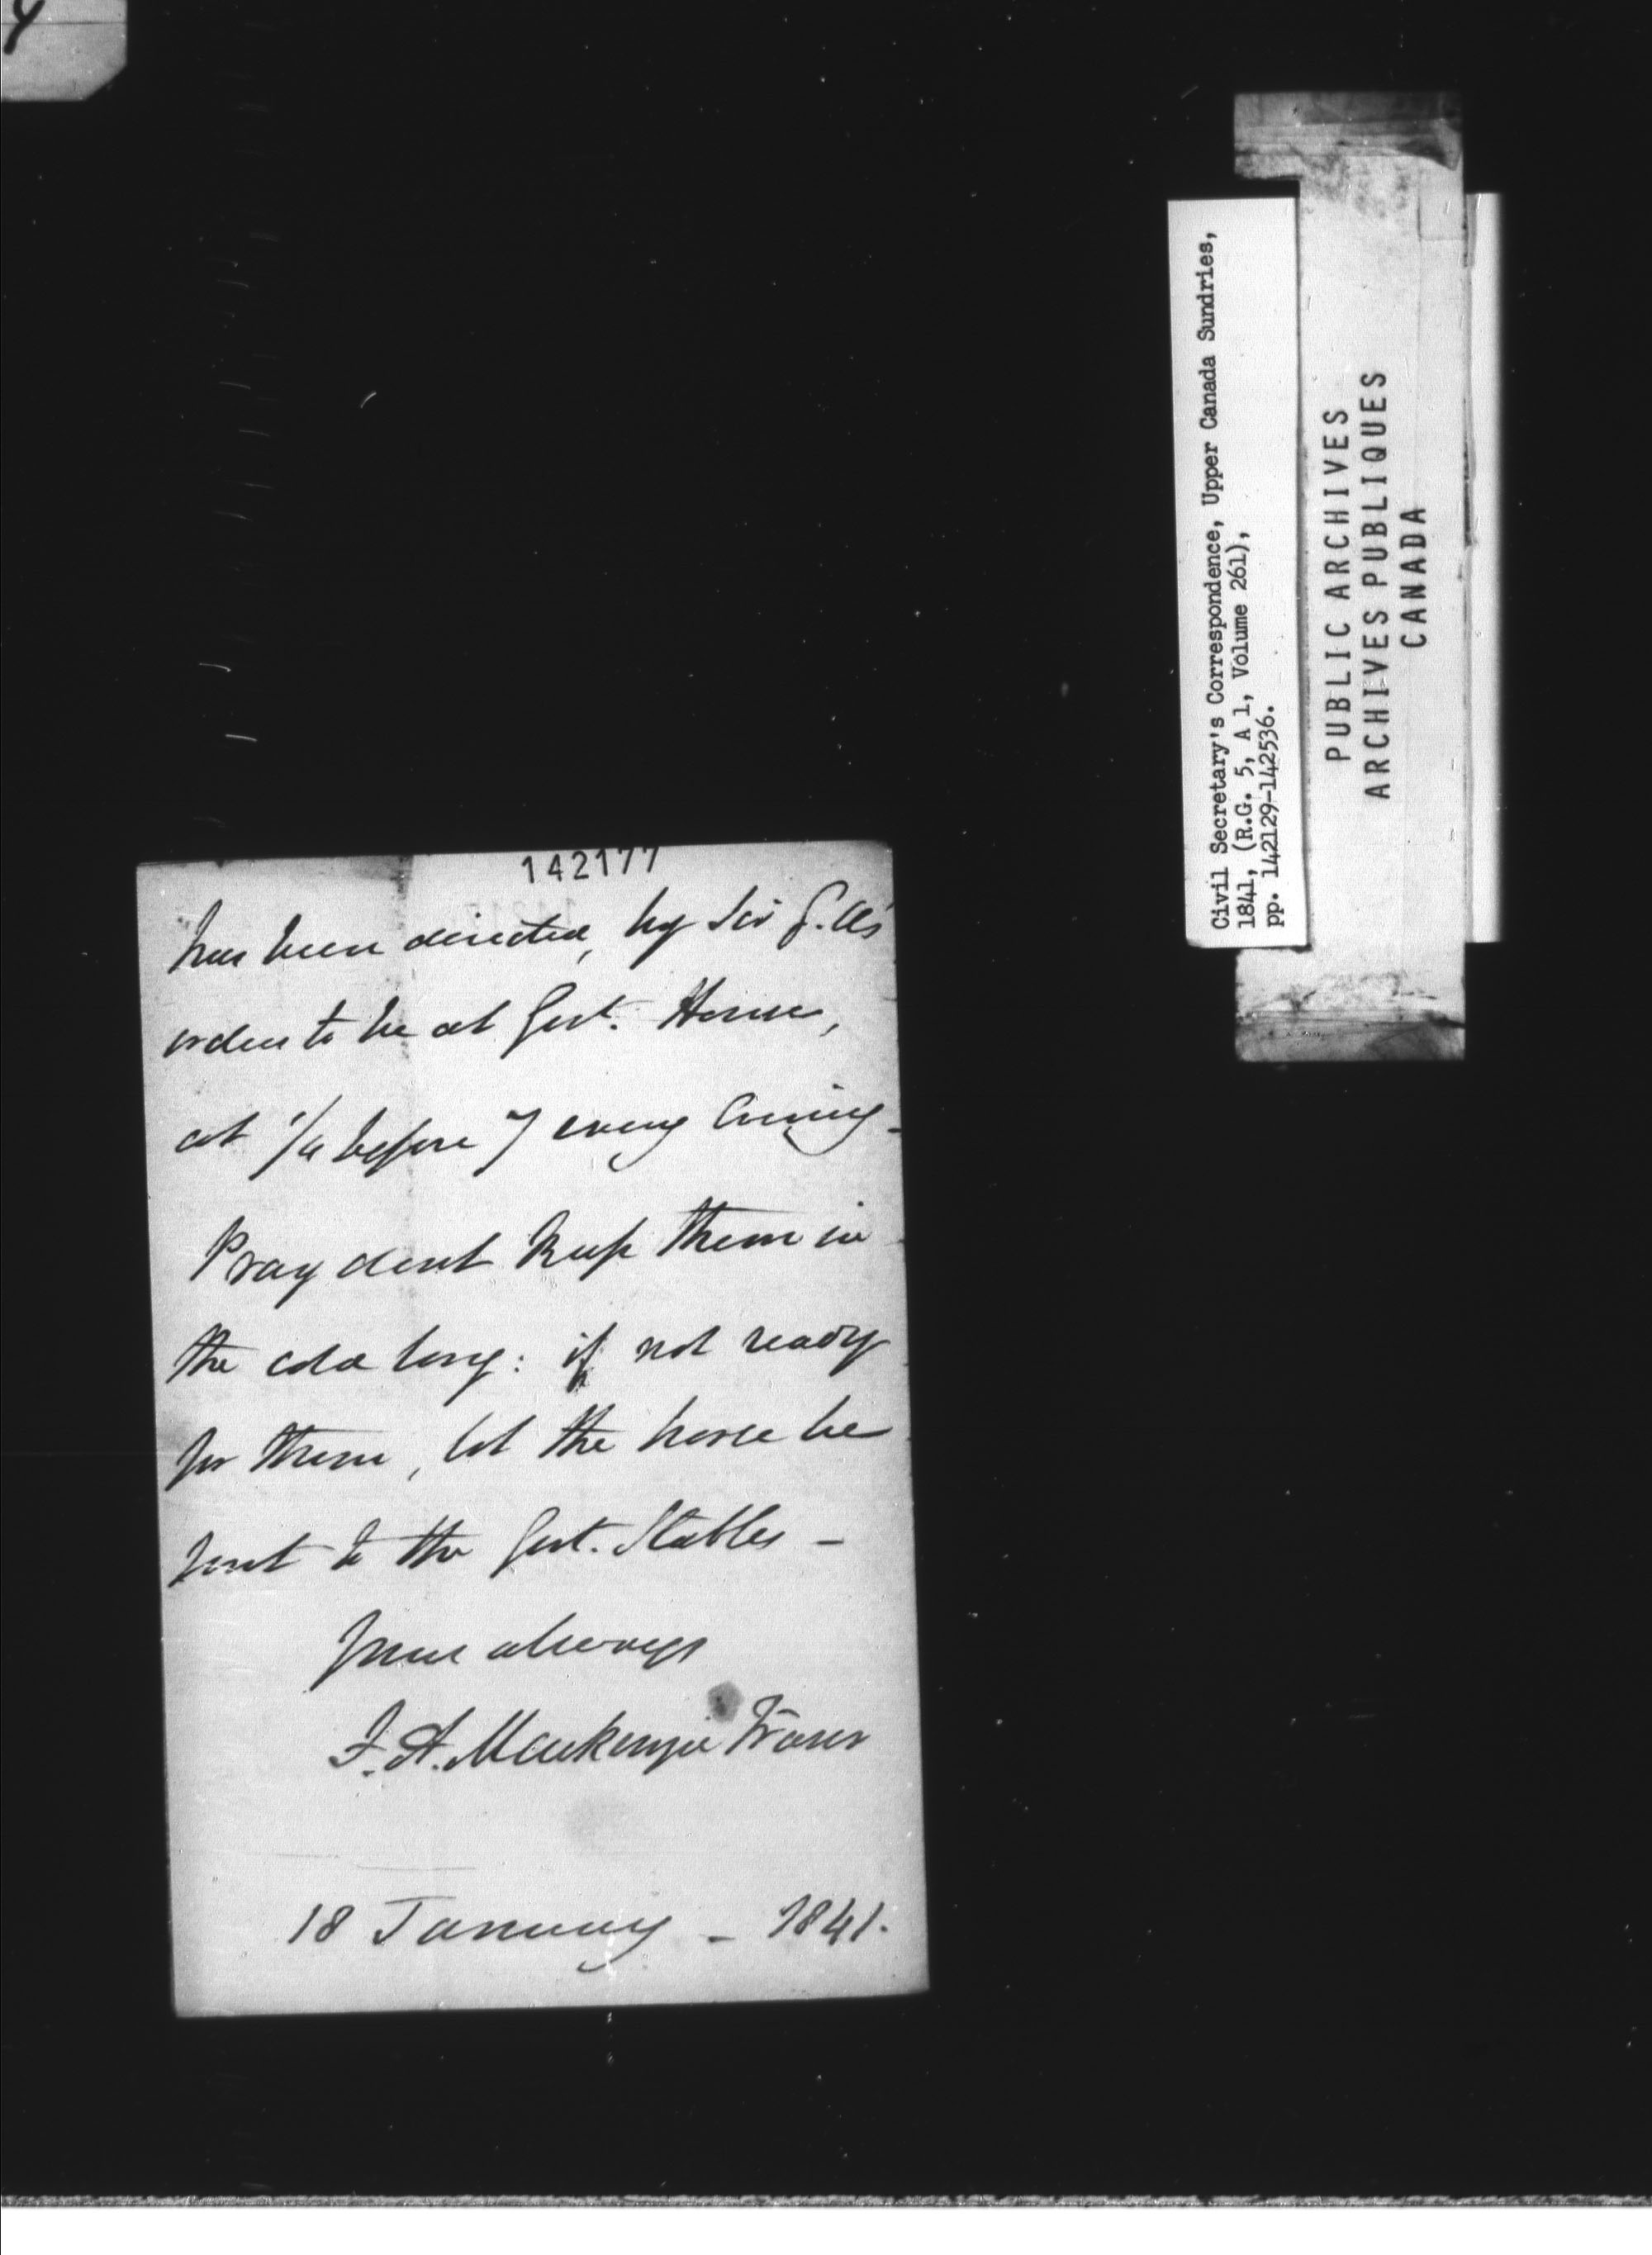 142177
has been directed, by Sir G. A's
orders to be at Govt. House,
at 1/4 before 7 every Evening -
Pray dont keep them in
the cold long: if not ready
for them, let the horse be
sent to the Govt. Stables -
Yours always
F. A. Mackenzie Fraser
18 January - 1841.
Civil Secretary's Correspondence, Upper Canada Sundries,
1841, (R.G. 5, A 1, Volume 261),
pp. 142129-142536.
PUBLIC ARCHIVES
ARCHIVES PUBLIQUES
CANADA